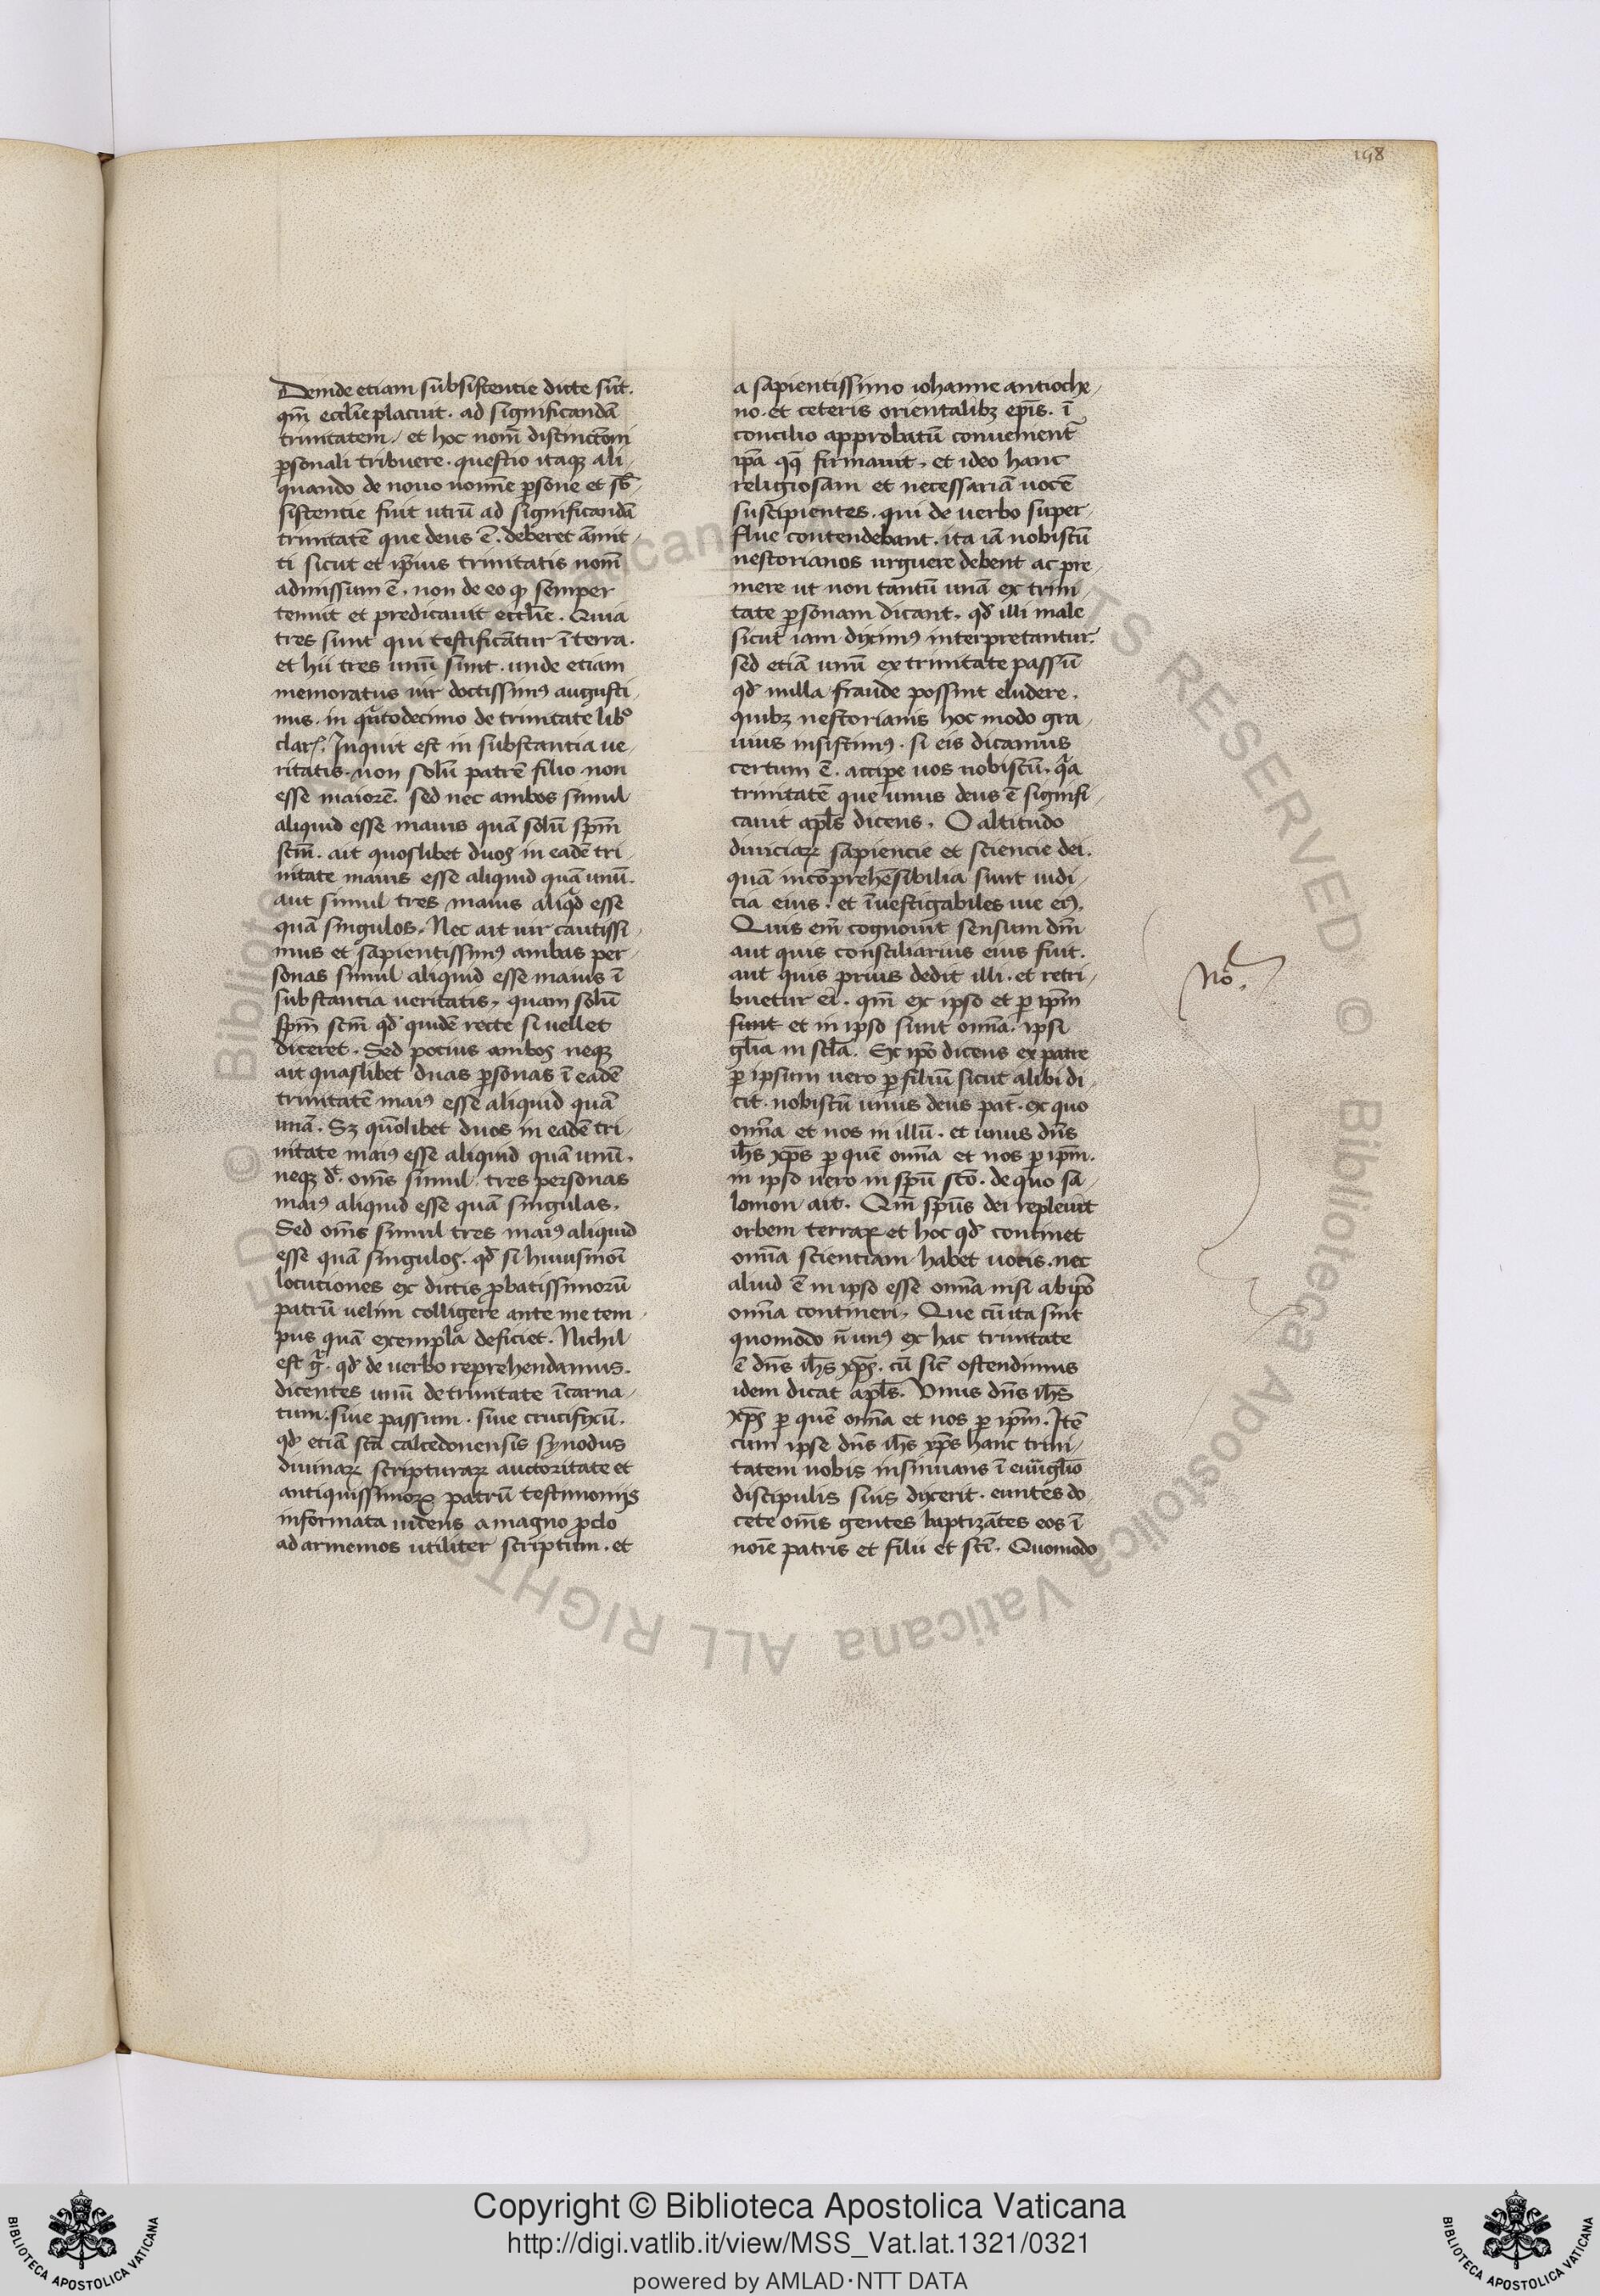 198
Deinde etiam subsistentie dicte sūt.
qm̄ ecclīe placuit. ad significandā
trinitatem, et hoc nom̄ distinctōni
ꝑsonali tribuere. questio itaqꝫ ali
quando de nouo nomīe ꝑsone et sb̄
sistentie fuit utrū ad significandā
trinitatē que deus ē. deberet āmit
ti sicut et ip̄ius trinitatis nom̄
admissum ē. non de eo ꝙ semper
tenuit et predicauit ecclīe. Quia
tres sunt qui testificātur ī terra.
et hii tres unū sunt. unde etiam
memoratus uir doctissimꝰ augusti
nus. in qͣrtodecimo de trinitate libͦ
Inquit est in substantia ue
ritatis. non solū patrē filio non
esse maiorē. sed nec ambos simul
aliquid esse maius quā solū sp̄m
sc̄m. ait quoslibet duos in eadē tri
nitate maius esse aliquid quā unū.
aut simul tres maius aliqͥd esse
quā singulos. Nec ait uir cautissi
mus et sapientissimꝰ ambas per
sonas simul aliquid esse maius ī
substantia ueritatis, quam solū
sp̄m sc̄m qd̄ quidē recte si uellet
diceret. Sed pocius ambos neqꝫ
ait quaslibet duas ꝑsonas ī eadē
trinitatē maiꝰ esse aliquid quā
unā. Sꝫ quōlibet duos in eadē tri
nitate maiꝰ esse aliquid quā unū.
neqꝫ d̄t. om̄s simul tres personas
maiꝰ aliquid esse quā singulas.
Sed om̄s simul tres maiꝰ aliquid
esse quā singulos. qd̄ si huiusmōi
locutiones ex dictis ꝓbatissimorū
patrū uelim colligere ante me tem
pus quā exempla deficiet. Nichil
est gͦ. qd̄ de uerbo reprehendamus.
dicentes unū de trinitate īcarna
tum. siue passum. siue crucifixū.
qd̄ etiā sc̄a calcedonensis synodus
diuinaꝝ scripturaꝝ auctoritate et
antiquissimoꝝ patrū testimonijs
informata uidens a magno ꝓclo
ad armenios utiliter scriptum. et
a sapientissimo iohanne antioche
no. et ceteris orientalibꝫ ep̄is. ī
concilio approbatū conuenient̄
ip̄a qꝗ firmauit. et ideo hanc
religiosam et necessariā uocē
suscipientes. qui de uerbo super
flue contendebant. ita iā nobiscū
nestorianos urguere debent ac pre
mere ut non tantū unā ex trini
tate ꝑsonam dicant. qd̄ illi male
sicut iam diximꝰ interpretantur.
sed etiā unū ex trinitate passū
qd̄ nulla fraude possint eludere.
quibꝫ nestorianis hoc modo gra
uius insistimꝰ. si eis dicamus
certum ē. accipe uos nobiscū. qͣa
trinitatē que unus deus ē signifi
cauit apl̄s dicens. O altitudo
diuiciaꝝ sapiencie et sciencie dei.
quā incōprehēsibilia sunt iudi
cia eius. et īuestigabiles uie eiꝰ.
Quis em̄ cognouit sensum dn̄i
aut quis consciliarius eius fuit.
aut quis prius dedit illi. et retri
buetur ei. qm̄ ex ipso et ꝑ ip̄m
sunt et in ipso sunt om̄a. ipsi
gl̄ia in scl̄a. Ex ip̄o dicens ex patre
ꝑ ipsum uero ꝑ filiū sicut alibi di
cit. nobiscū unus deus pat̄. ex quo
om̄a et nos in illū. et unus dn̄s
ih̄s xp̄s ꝑ quē om̄a et nos ꝑ ip̄m.
in ipso uero in sp̄u sc̄o. de quo sa
lomon ait. Qm̄ sp̄us dei repleuit
orbem terraꝝ et hoc qd̄ continet
om̄ia scientiam habet uocis. nec
aliud ē in ipso esse om̄ia nisi ab ip̄o
om̄ia contineri. Que cū ita sint
quomodo n̄ unꝰ ex hac trinitate
ē dn̄s ih̄s xp̄s. cū sic̄ ostendimus
idem dicat apl̄s. Vnus dn̄s ih̄s
xp̄s ꝑ quē om̄a et nos ꝑ ip̄m. Itē
cum ipse dn̄s ih̄s xp̄s hanc trini
tatem nobis insinuans ī euūglīo
discipulis suis dixerit. euntes do
cete om̄s gentes baptizātes eos ī
noīe patris et filii et sc̄i. Quomodo
No.
Copyright © Biblioteca Apostolica Vaticana
http://digi.vatlib.it/view/MSS_Vat.lat.1321/0321
powered by AMLAD·NTT DATA
BIBLIOTECA APOSTOLICA VATICANA
BIBLIOTECA APOSTOLICA VATICANA
© Biblioteca Apostolica Vaticana ALL RIGHTS RESERVED